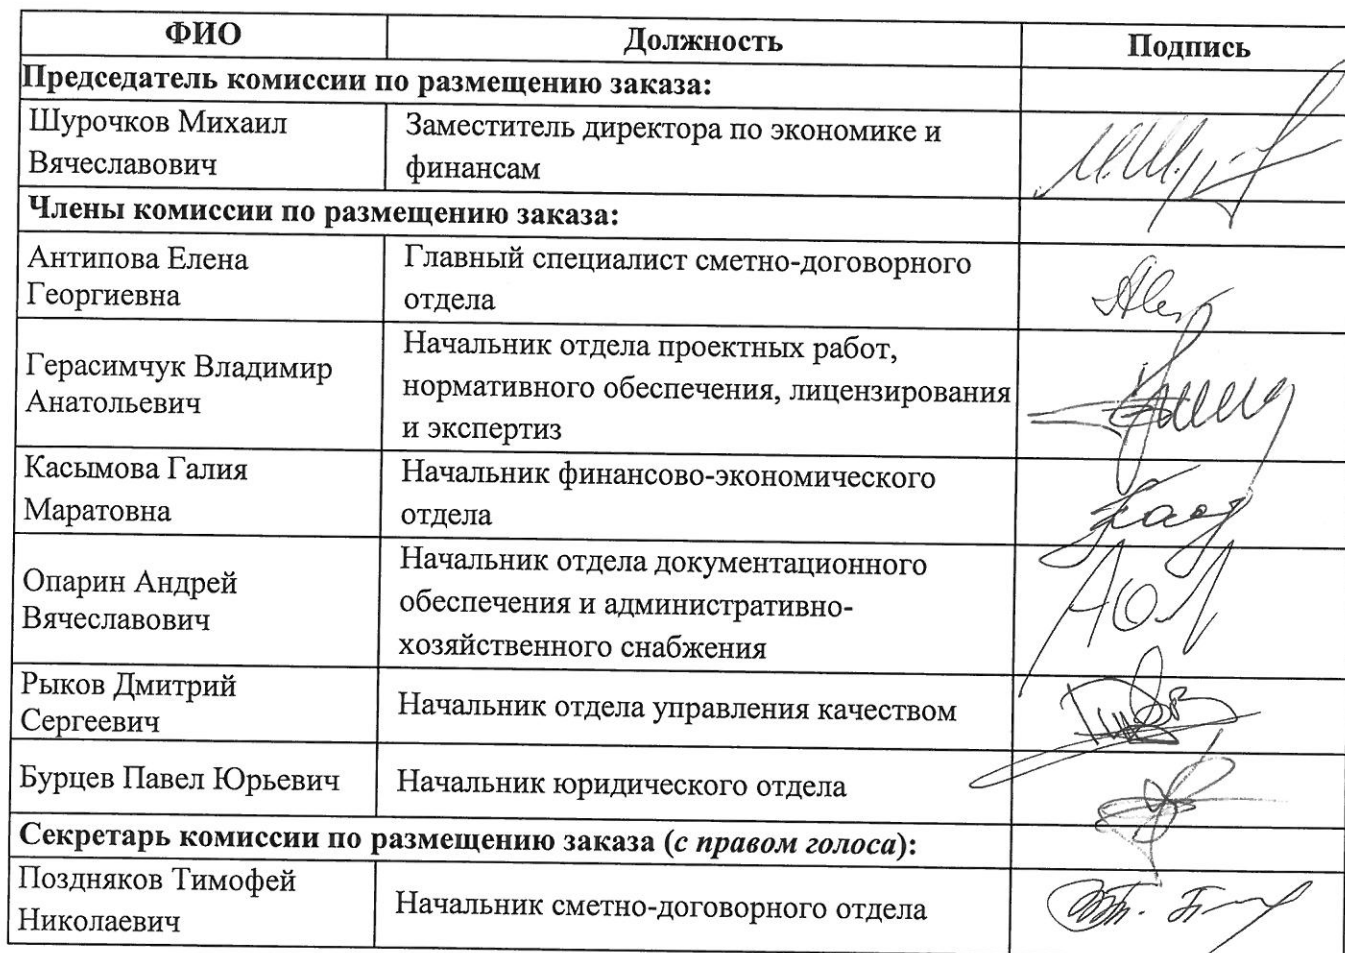 ФИО Должность Подпись
Председатель комиссии по размещению заказа:
Шурочков Михаил
Вячеславович
Заместитель директора по экономике и
финансам
Члены комиссии по размещению заказа:
Антипова Елена
Георгиевна
Главный специалист сметно-договорного
отдела
Герасимчук Владимир
Анатольевич
Начальник отдела проектных работ,
нормативного обеспечения, лицензирования
и экспертиз
Касымова Галия
Маратовна
Начальник финансово-экономического
отдела
Опарин Андрей
Вячеславович
Начальник отдела документационного
обеспечения и административно-
хозяйственного снабжения
Рыков Дмитрий
Сергеевич
Начальник отдела управления качеством
Бурцев Павел Юрьевич
Начальник юридического отдела
Секретарь комиссии по размещению заказа (с правом голоса):
Поздняков Тимофей
Николаевич
Начальник сметно-договорного отдела